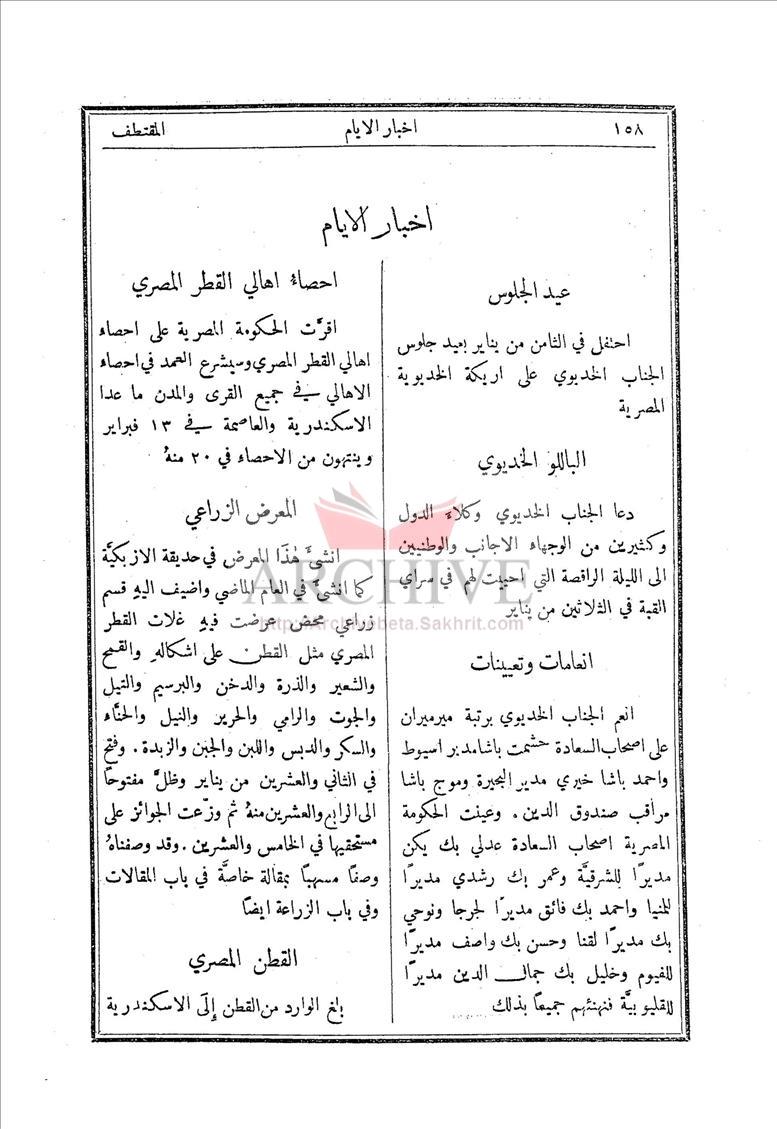 ١٥٨
اخبار الايام
المقتطف
اخبار الايام
عيد الجلوس
احتفل في الثامن من يناير بعيد جلوس
الجناب الخديوي على اريكة الخديوية
المصرية
الباللو الخديوي
دعا الجناب الخديوي وكلاء الدول
وكثيرين من الوجهاء الاجانب والوطنيين
الى الليلة الراقصة التي احييت لهم في سراي
القبة في الثلاثين من يناير
انعامات وتعيينات
انعم الجناب الخديوي برتبة ميرميران
على اصحاب السعادة حشمت باشا مدير اسيوط
واحمد باشا خيري مدير البحيرة وموج باشا
مراقب صندوق الدين . وعينت الحكومة
المصرية اصحاب السعادة عدلي بك يكن
مديرًا للشرقيَّة وعمر بك رشدي مديرًا
للمنيا واحمد بك فائق مديرًا لجرجا ونوحي
بك مديرًا لقنا وحسن بك واصف مديرًا
للفيوم وخليل بك جمال الدين مديرًا
للقليوبيَّة فنهنئهم جميعًا بذلك
احصاءُ اهالي القطر المصري
اقرَّت الحكومة المصرية على احصاء
اهالي القطر المصري وسيشرع العمد في احصاء
الاهالي في جميع القرى والمدن ما عدا
الاسكندرية والعاصمة في ١٣ فبراير
وينتهون من الاحصاء في ٢٠ منهُ
المعرض الزراعي
انشئَ هٰذا المعرض في حديقة الازبكيَّة
كما انشئَ في العام الماضي واضيف اليهِ قسم
زراعي محض عرضت فيهِ غلات القطر
المصري مثل القطن على اشكالهِ والقمح
والشعير والذرة والدخن والبرسيم والتيل
والجوت والرامي والحرير والنيل والحنَّاء
والسكر والدبس واللبن والجبن والزبدة . وفتح
في الثاني والعشرين من يناير وظلَّ مفتوحًا
الى الرابع والعشرين منهُ ثم وزّعت الجوائز على
مستحقيها في الخامس والعشرين . وقد وصفناهُ
وصفًا مسهبًا بمقالة خاصَّة في باب المقالات
وفي باب الزراعة ايضًا
القطن المصري
بلغ الوارد من القطن إِلَى الاسكندرية
ARCHIVE
http://Archivebeta.Sakhrit.com